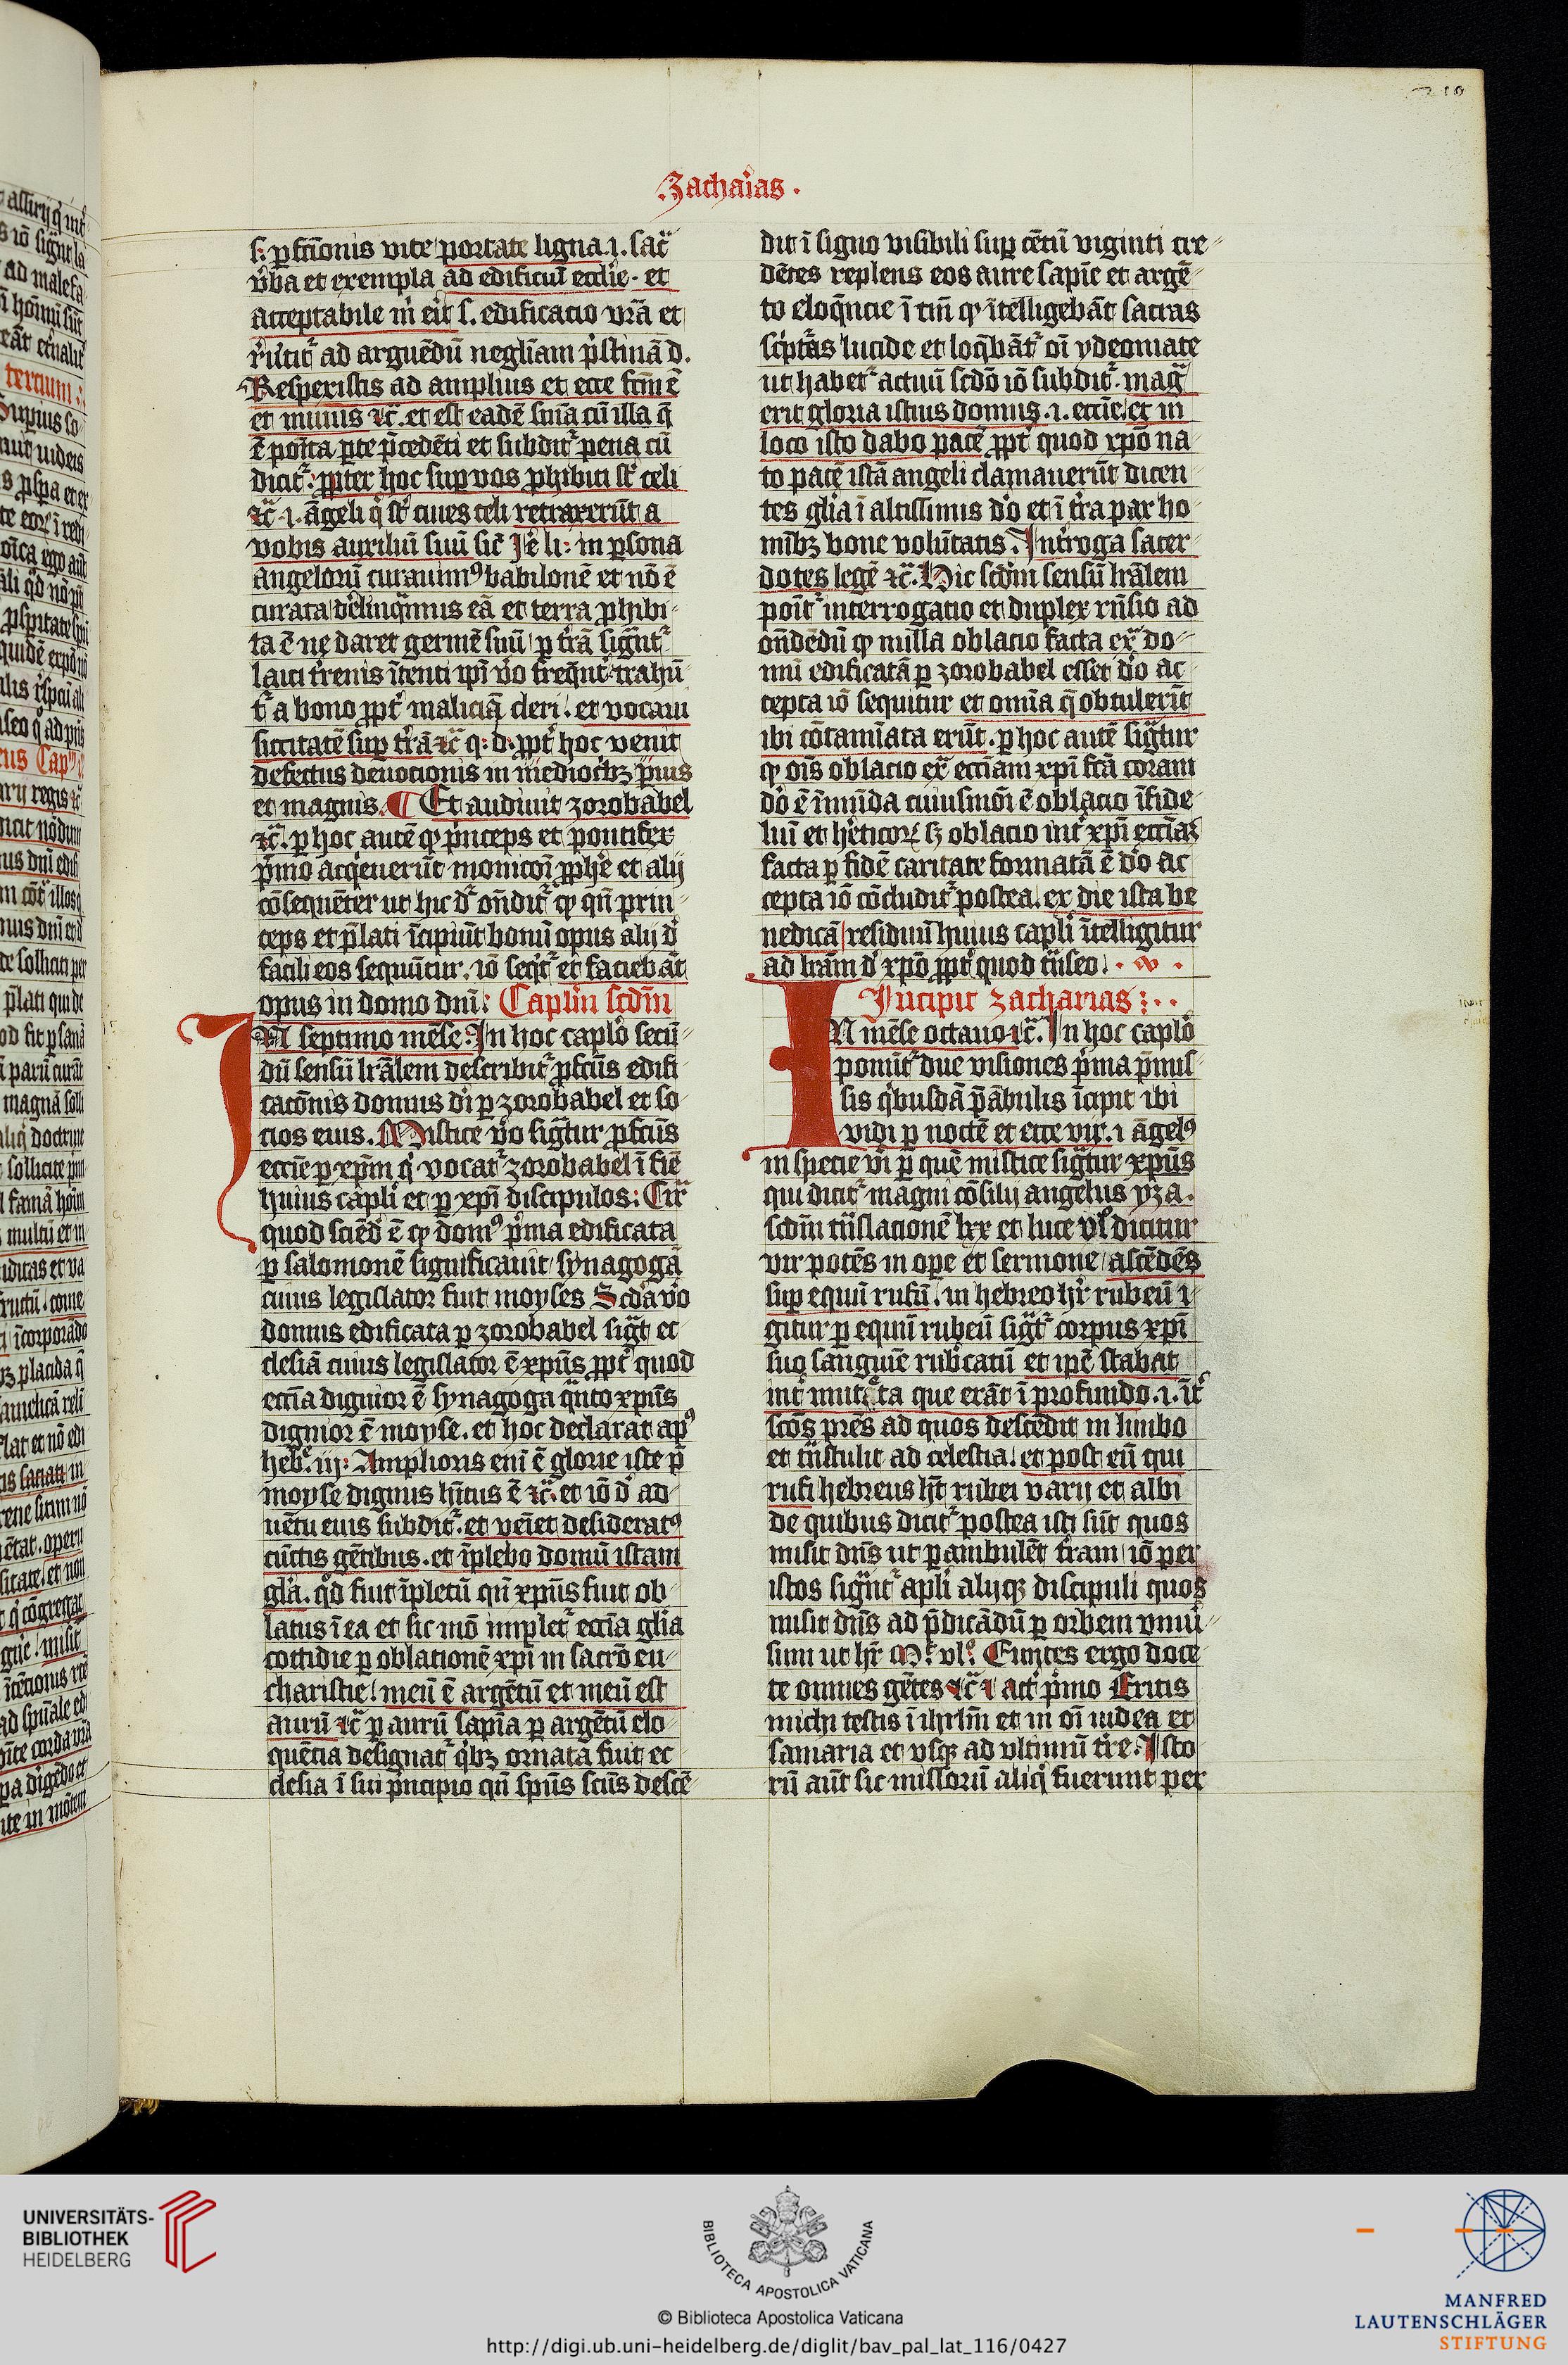 210
Zachaias.
s: ꝑfc̄ionis vite portate ligna .i. sac̄
v̓ba et exempla ad edificiū eccl̄ie. et
acceptabile m̄ erit s. edificatio vr̄a et
ad arguēdū negl̄iam p̓stinā d.
Respexistis ad amplius et ecce fc̄m ē
et minus ⁊c̄. et est eadē sn̄ia cū illa q̄
ē po͛ita ꝑte p̄cedēti et subdit͛ pena cū
dicit͛: ꝓpter hoc suꝑ vos ꝓhibiti st͛ celi
⁊c̄ .i. āgeli q͛ st͛ ciues celi retraxerūt a
vobis auxiliū suū sic̄ Je͛ li: in ꝑsona
angelorū curauimꝰ babilonē et nō ē
curata d̓elinq̄mus eā et terra ꝓhibi-
ta ē ne daret germē suū ꝑ t͛rā sigͣnt͛
laici t͛renis ītenti ip̄i v̓o freq̄nt͛ trahū-
t͛ a bono ꝓpt͛ maliciā cleri. et vocaui
siccitatē suꝑ t͛rā ⁊c̄ q: d. ꝓpt͛ hoc venit
defectus deuotionis in mediocͥbꝫ p̄uis
et magnis. ¶ Et audiuit zorobabel
⁊c̄. ꝑ hoc autē ꝙ p͛nceps et pontifex
p͛mo acq͛euerūt monicōi ꝓph̓e et alij
cōsequēter ut hic d͛r on̄dit͛ ꝙ qn̄ prin-
ceps et p̄lati īcipiūt bonū opus alij d̓
facili eos sequūtur. iō seq͛t͛ et faciebāt
opus in domo dn̄i: Capl̄m sc̄dm̄
IN septimo mēse: In hoc capl̓o secū-
dū sensū lr̄alem describit͛ ꝑfc̄us edifi-
cacōnis domus d̓i ꝑ zorobabel et so-
cios eius. Mistice v̓o sigͣtur ꝑfc̄us
ecc̄ie ꝑ xp̄m q͛ vocat͛ zorobabel ī fiē
huius capl̓i et ꝑ xp̄i discipulos: Cir̄
quod sciēd̓ ē ꝙ domꝰ p͛ma edificata
ꝑ salomonē significauit synagogā
cuius legislator fuit moyses Sc̄da v̓o
domus edificata ꝑ zorobabel sigͣt ec-
clesiā cuius legislator ē xp̄us ꝓpt͛ quod
ecc̄ia dignior ē synagoga qͣnto xp̄us
dignior ē moyse. et hoc declarat apꝰ
heb͛. iij: Amplioris eni ē glorie iste p̄
moyse dignus h̓itus ē ⁊c̄. et iō d̓ ad-
uētu eius subdit͛. et veīet desideratꝰ
cūctis gētibus. et īplebo domū istam
gl̓a. qd̓ fuit īpletū qn̄ xp̄us fuit ob-
latus ī ea et sic mō implet͛ ecc̄ia gl̓ia
cottidie ꝑ oblationē xp̄i in sacr̄o eu-
charistie! meū ē argētū et meū est
aurū ⁊c̄ ꝑ aurū sapīa ꝑ argētū elo-
quēcia designat͛ qͥbꝫ ornata fuit ec-
clesia ī sui p͛ncipio qn̄ sp̄us sc̄us descē-
dit ī signo visibili suꝑ cētū viginti cre-
dētes replens eos aure sapīe et argē-
to eloq̄ncie ī tm̄ ꝙ ītelligebāt sacras
sc͛ptͣas lucide et loq̄bāt͛ oī ydeomate
ut habet͛ actuū sc̄do iō subdit͛. magͣ
erit gloria istius domus .i. ecc̄ie et in
loco isto dabo pacē ꝓpt͛ quod xp̄o na-
to pacē istā angeli clamauerūt dicen-
tes gl̓ia ī altissimis d̓o et ī t͛ra pax ho-
mībꝫ bone volūtatis. Int͛roga sacer-
dotes legē ⁊c̄. Hic sc̄dm sensū lr̄alem
poīt͛ interrogatio et duplex rn̄sio ad
on̄dēdū ꝙ nulla oblatio facta ex͛ do-
mū edificatā ꝑ zorobabel esset d̓o ac-
cepta iō sequitur et om̄ia q̄ obtulerūt
ibi cōtamīata erūt. ꝑ hoc autē sigͣtur
ꝙ oīs oblatio ex͛ ecc̄iam xp̄i fc̄a coram
d̓o ē īmūda cuiusmōi ē oblatio īfide-
liū et h̓eticoꝝ sꝫ oblatio int͛ xp̄i ecc̄iaꝫ
facta ꝑ fidē caritate formatā ē d̓o ac-
cepta iō cōcludit͛ postea. ex die ista be-
nedicā residuū huius capl̓i ītelligitur
ad lr̄am d̓ xp̄o ꝓpt͛ quod tn̄seo.
Incipit zacharias:..
IN mēse octauo ⁊c̄. In hoc capl̓o
ponūt͛ due visiones p͛ma p̄mis-
sis qͥbusdā p̄ābulis īcipit ibi
vidi ꝑ noctē et ecce vir .i. āgelꝰ
in specie vi͛i ꝑ quē mistice sigͣtur xp̄us
qui dicit͛ magni cōsilij angelus yza.
sc̄dm tn̄slationē lxx et luce vl͛o dicitur
vir potēs in ope et sermone ascēdēs
suꝑ equū rufū. in hebreo hr̄ rubeū i-
gitur ꝑ equū rubeū sigͣt͛ corpus xp̄i
suo sanguīe rub͛catū et ip̄e stabat
int͛ mirteta que erāt ī profundo .i. īt͛
sc̄os pr̄es ad quos descēdit in limbo
et tn̄stulit ad celestia. et post eū qui
rufi hebreus ht̄ rubei varij et albi
de quibus dicit͛ postea isti sūt quos
misit dn̄s ut ꝑambulēt t͛ram iō per
istos sigͣnt͛ apl̓i alijqꝫ discipuli quos
misit dn̄s ad p̄dicādū ꝑ orbem vniu͛-
sum ut hr̄ Mͭ. vl͛o. Euntes ergo doce-
te omnes gētes ⁊c̄ ⁊ act͛ p͛mo Eritis
michi testis ī ihrl̄m et in oī iudea et
samaria et vsqꝫ ad vltimū t͛re. Isto-
rū aūt sic missorū aliq͛ fuerunt per
UNIVERSITÄTS-
BIBLIOTHEK
HEIDELBERG
BIBLIOTECA APOSTOLICA VATICANA
© Biblioteca Apostolica Vaticana
http://digi.ub.uni-heidelberg.de/diglit/bav_pal_lat_116/0427
MANFRED
LAUTENSCHLÄGER
STIFTUNG